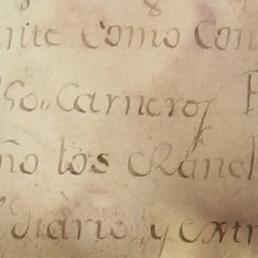 nite como con
so,, Carneros
ño los Ranch
Diario y extr